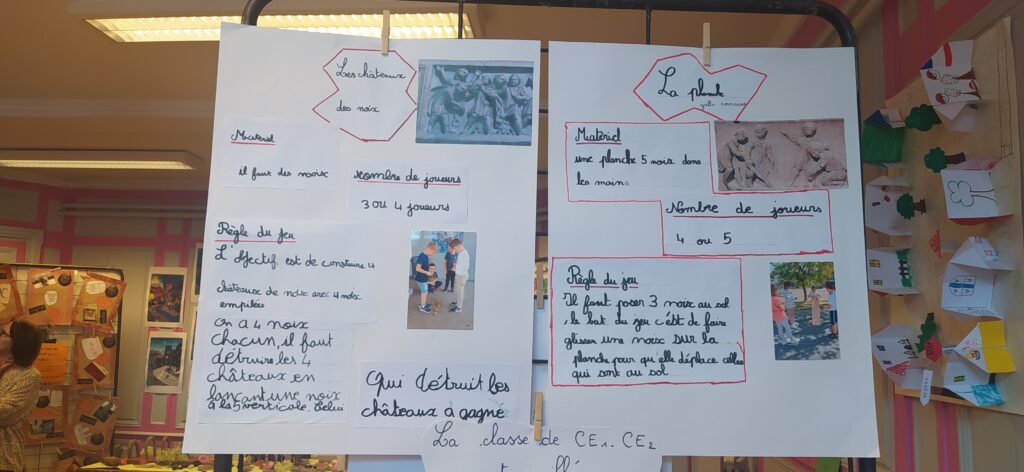 Les châteaux
des noix
Matériel
il faut des noix
nombre de joueurs
3 ou 4 joueurs
Règle du jeu
L'objectif est de construire 4
châteaux de noix avec 4 noix
empilées
On a 4 noix
chacun, il faut
détruire les 4
châteaux en
lançant une noix
à la verticale. Celui
Qui détruit les
châteaux à gagné
La planche
gallo romaine
Matériel
une planche 5 noix dans
les mains
Nombre de joueurs
4 ou 5
Règle du jeu
Il faut poser 3 noix au sol
, le but du jeu c'ést de faire
glisser une noix sur la
planche pour qu'elle déplace celles
qui sont au sol
La classe de CE1. CE2